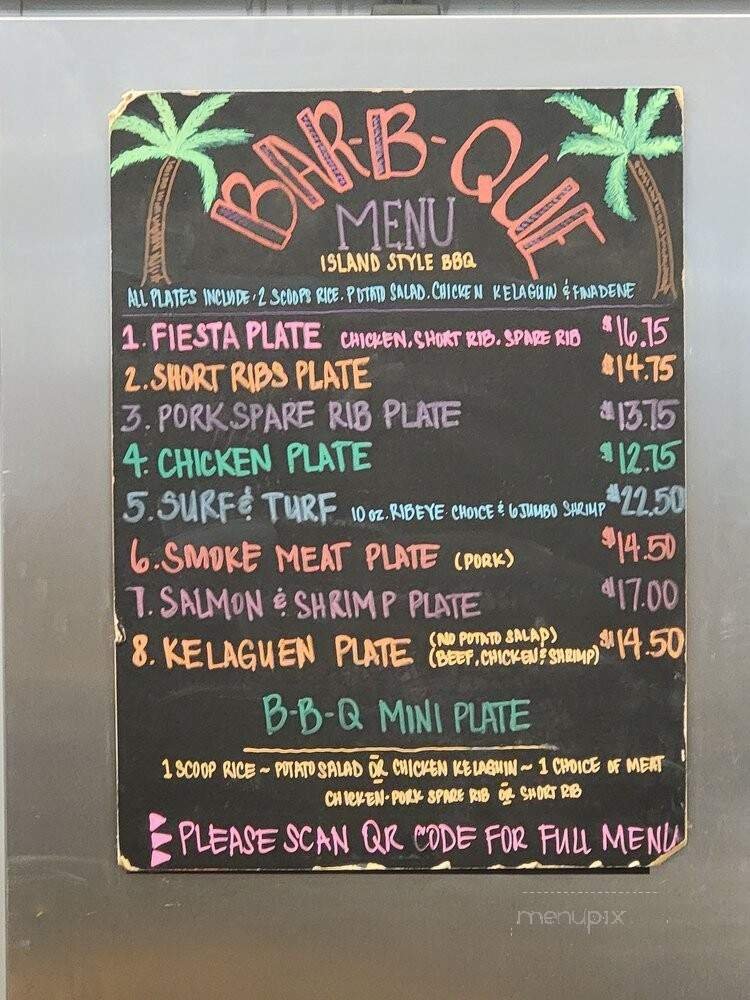 BAR-B-QUE
MENU
ISLAND STYLE BBQ
ALL PLATES INCLUDE · 2 SCOOPS RICE. POTATO SALAD. CHICKEN KELAGUIN & FINADENE
1. FIESTA PLATE CHICKEN, SHORT RIB, SPARE RIB $16.75
2. SHORT RIBS PLATE $14.75
3. PORK SPARE RIB PLATE $13.75
4. CHICKEN PLATE $12.75
5. SURF & TURF 10 oz. RIBEYE CHOICE & 6 JUMBO SHRIMP $22.50
6. SMOKE MEAT PLATE (PORK) $14.50
7. SALMON & SHRIMP PLATE $17.00
8. KELAGUEN PLATE (NO POTATO SALAD) $14.50
(BEEF, CHICKEN & SHRIMP)
B-B-Q MINI PLATE
1 SCOOP RICE ~ POTATO SALAD OR CHICKEN KELAGUIN ~ 1 CHOICE OF MEAT
CHICKEN - PORK SPARE RIB OR SHORT RIB
PLEASE SCAN QR CODE FOR FULL MENU
menupix